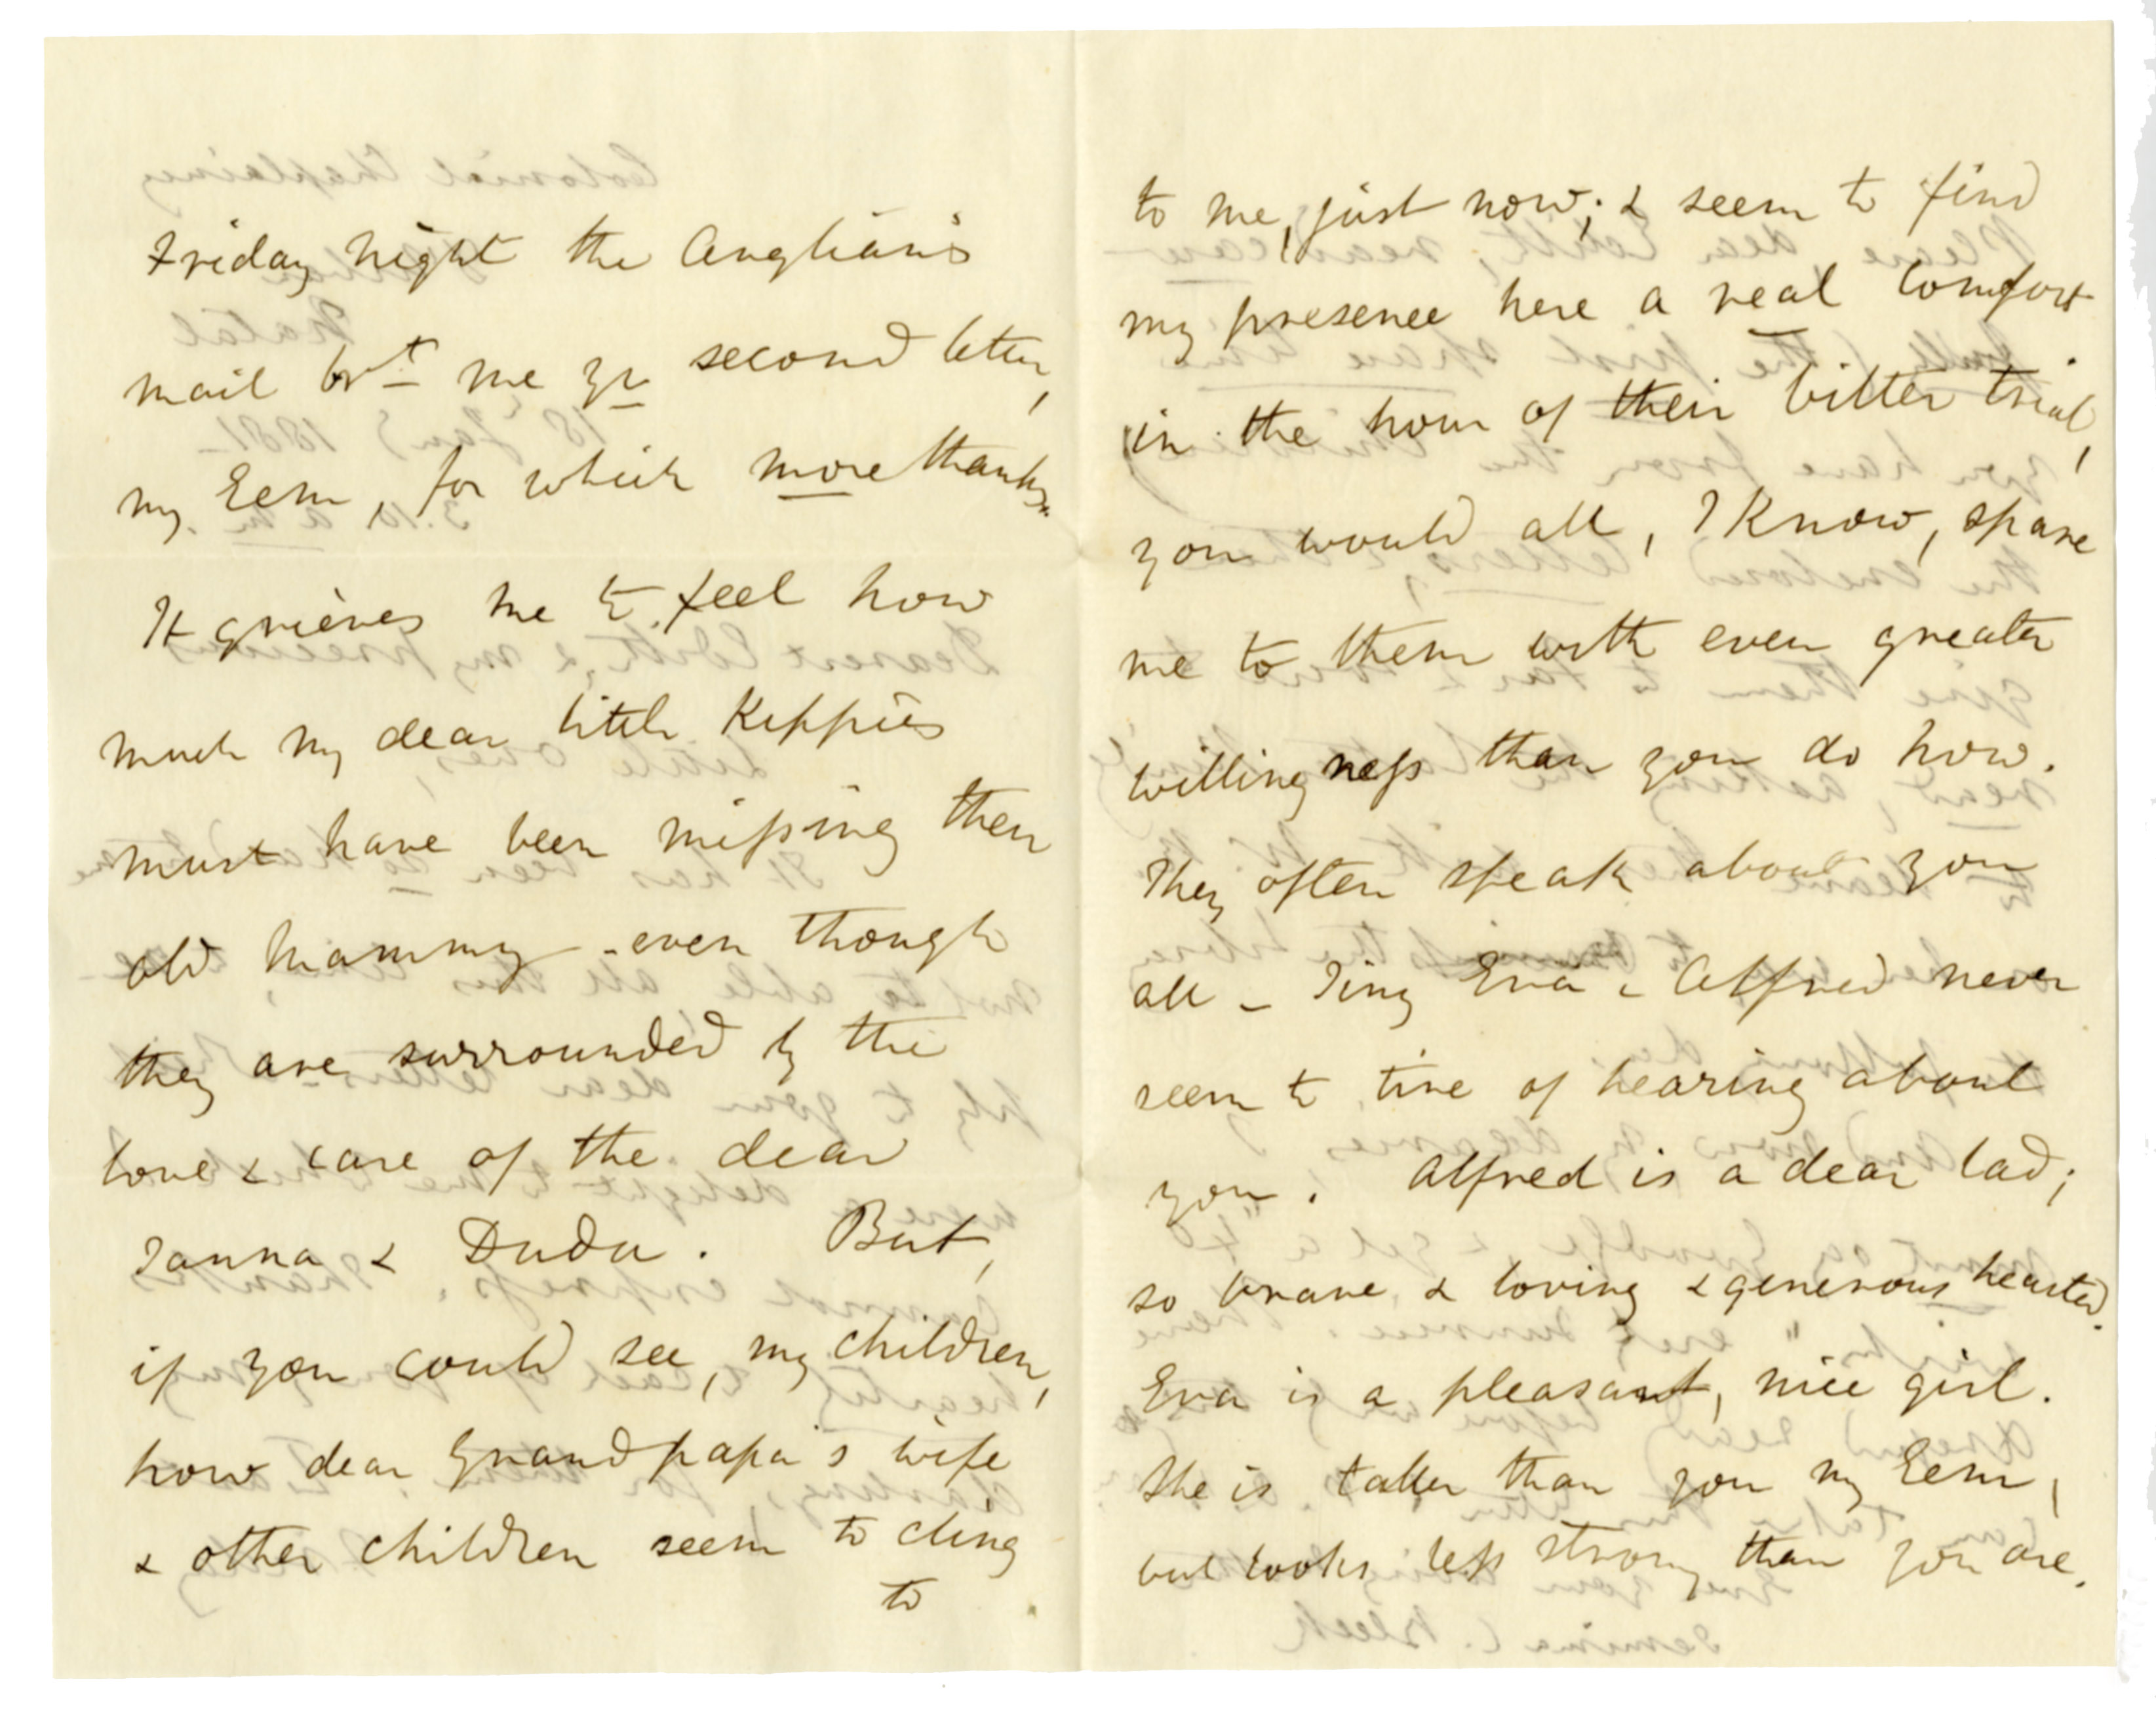 Friday night the Anglian's
mail brt me yr second letter,
my Eem, for which more thanks.
It grieves me to feel how
much my dear little Kippies
must have been missing their
old Mammy - even though
they are surrounded by the
love & care of the dear
Janna & Dudu. But,
if you could see, my children,
how dear Grandpapa's wife
& other children seem to cling
to
to me, just now; & seem to find
my presence here a real comfort
in the hour of their bitter trial,
you would all, I know, spare
me to them with even greater
willingness than you do now.
They often speak about you
all - Tiny Eva & Alfred never
seem to tire of hearing about
you. Alfred is a dear lad;
so brave & loving & generous hearted.
Eva is a pleasant, nice girl.
She is taller than you my Eem,
but looks less strong than you are.